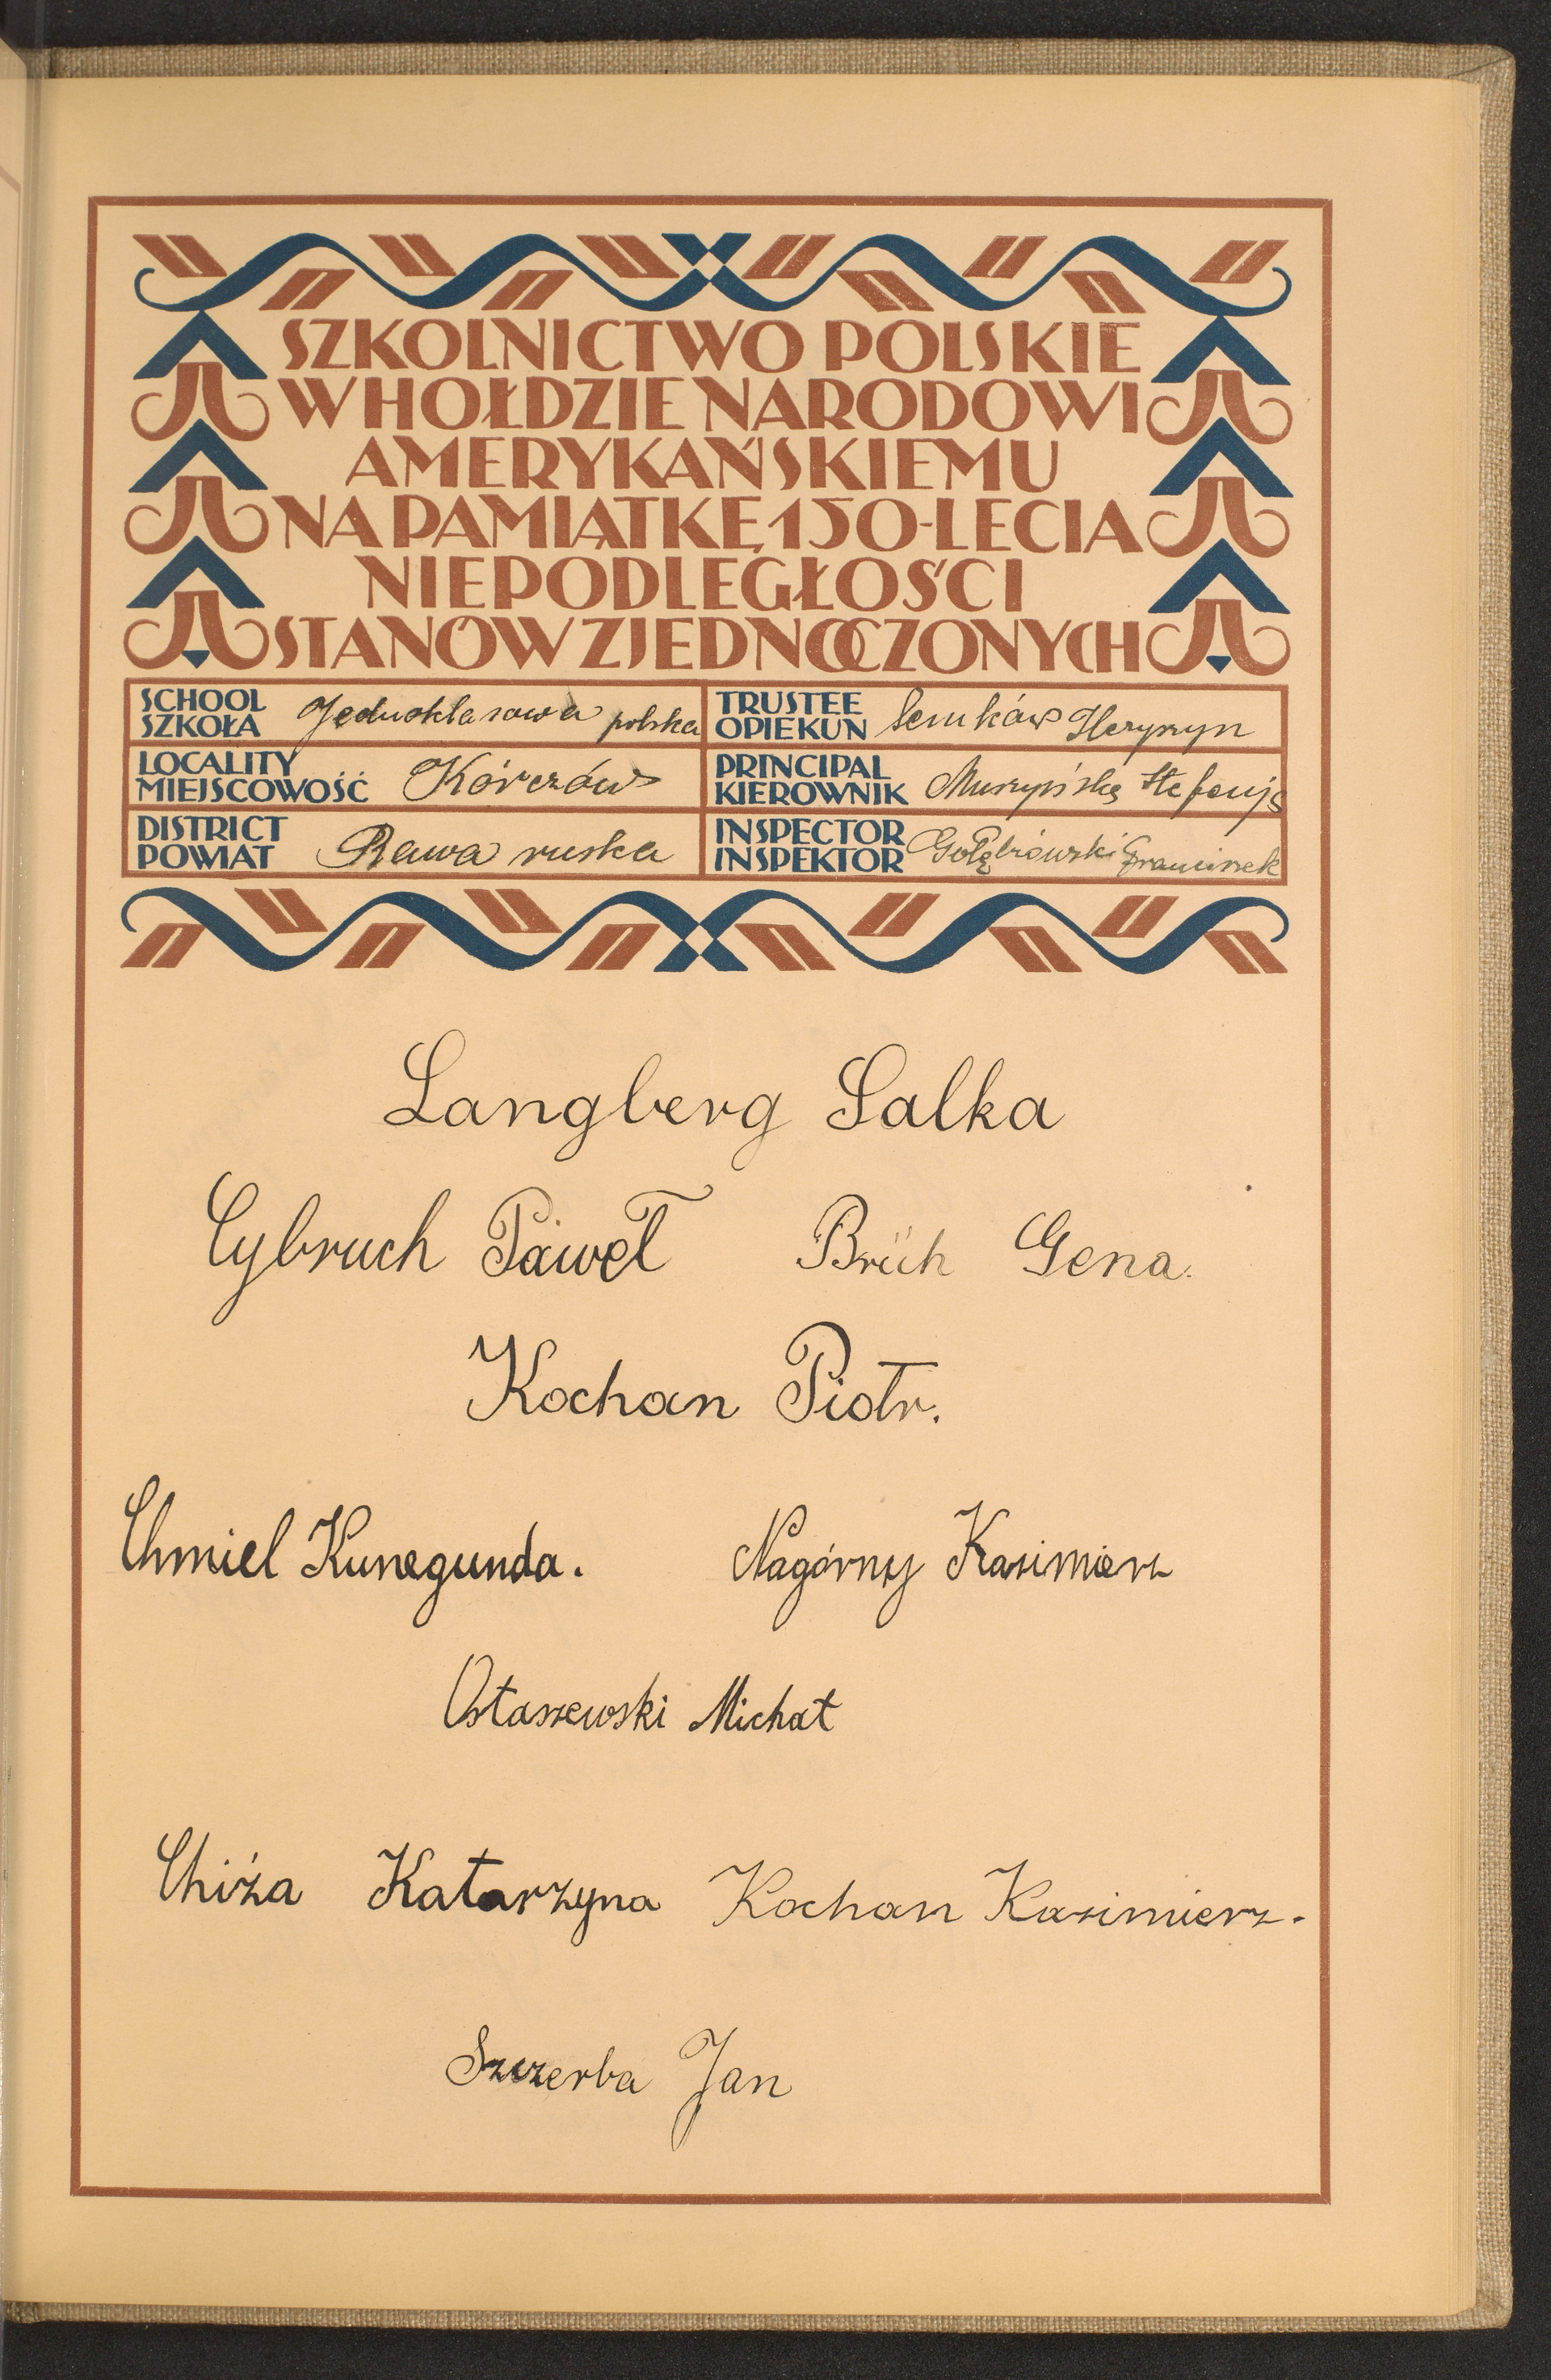 SZKOLNICTWO POLSKIE
W HOŁDZIE NARODOWI
AMERYKAŃSKIEMU
NA PAMIĄTKĘ 150-LECIA
NIEPODLEGŁOŚCI
STANÓW ZJEDNOCZONYCH
SCHOOL
SZKOŁA Jednoklasowa polska
TRUSTEE
OPIEKUN Semków
LOCALITY
MIEJSCOWOŚĆ Kórczów
PRINCIPAL
KIEROWNIK Muszyńska Stefanja
DISTRICT
POWIAT Rawa ruska
INSPECTOR
INSPEKTOR Gołębiowski Franciszek
Langberg Salka
Cybruch Paweł Brüh Gena.
Kochan Piotr.
Chmiel Kunegunda. Nagórny Kazimierz
Ostaszewski Michał
Chiża Katarzyna Kochan Kazimierz.
Szczerba Jan